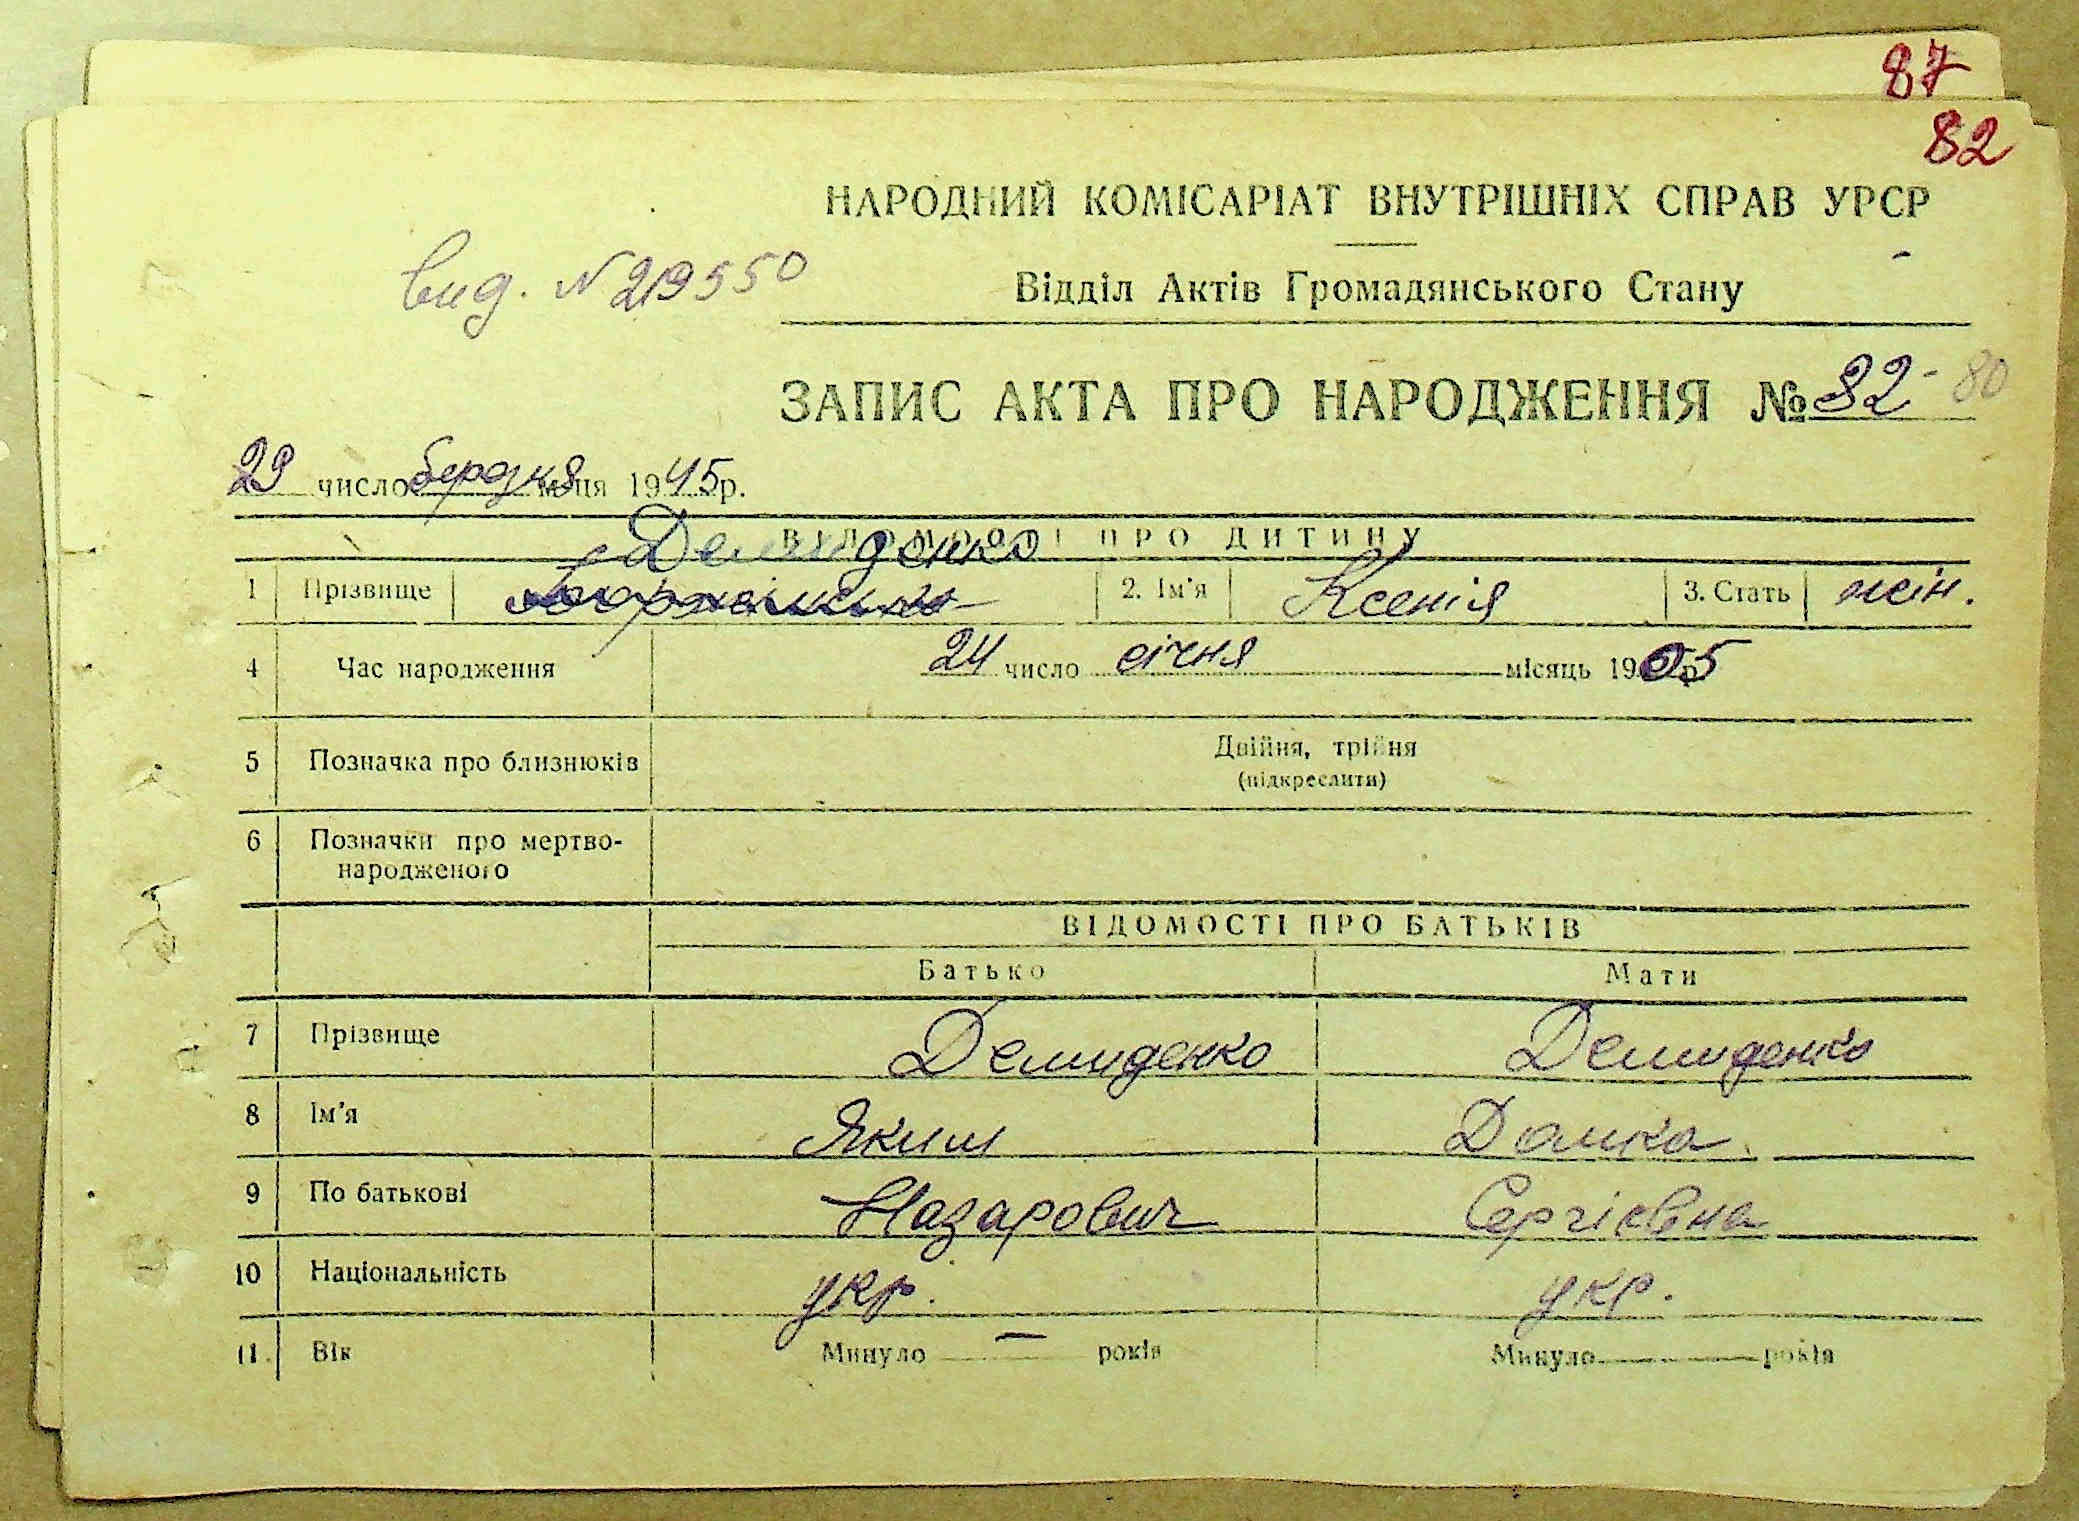 87
82
НАРОДНИЙ КОМІСАРІАТ ВНУТРІШНІХ СПРАВ УРСР
вид. N 219550
Відділ Актів Громадянського Стану
ЗАПИС АКТА ПРО НАРОДЖЕННЯ № 82 - 80
29 число березня м-ця 1945 р.
ВІДОМОСТІ ПРО ДИТИНУ
Демиденко
1 Прізвище 2. Ім'я Ксенія 3. Стать жін.
4 Час народження 24 число січня місяць 1905 р.
5 Позначка про близнюків Двійня, трійня
(підкреслити)
6 Позначки про мертво-
народженого
ВІДОМОСТІ ПРО БАТЬКІВ
Батько Мати
7 Прізвище Демиденко Демиденко
8 Ім'я Яким Домка
9 По батькові Назарович Сергієвна
10 Національність укр. укр.
11. Вік Минуло — років Минуло років